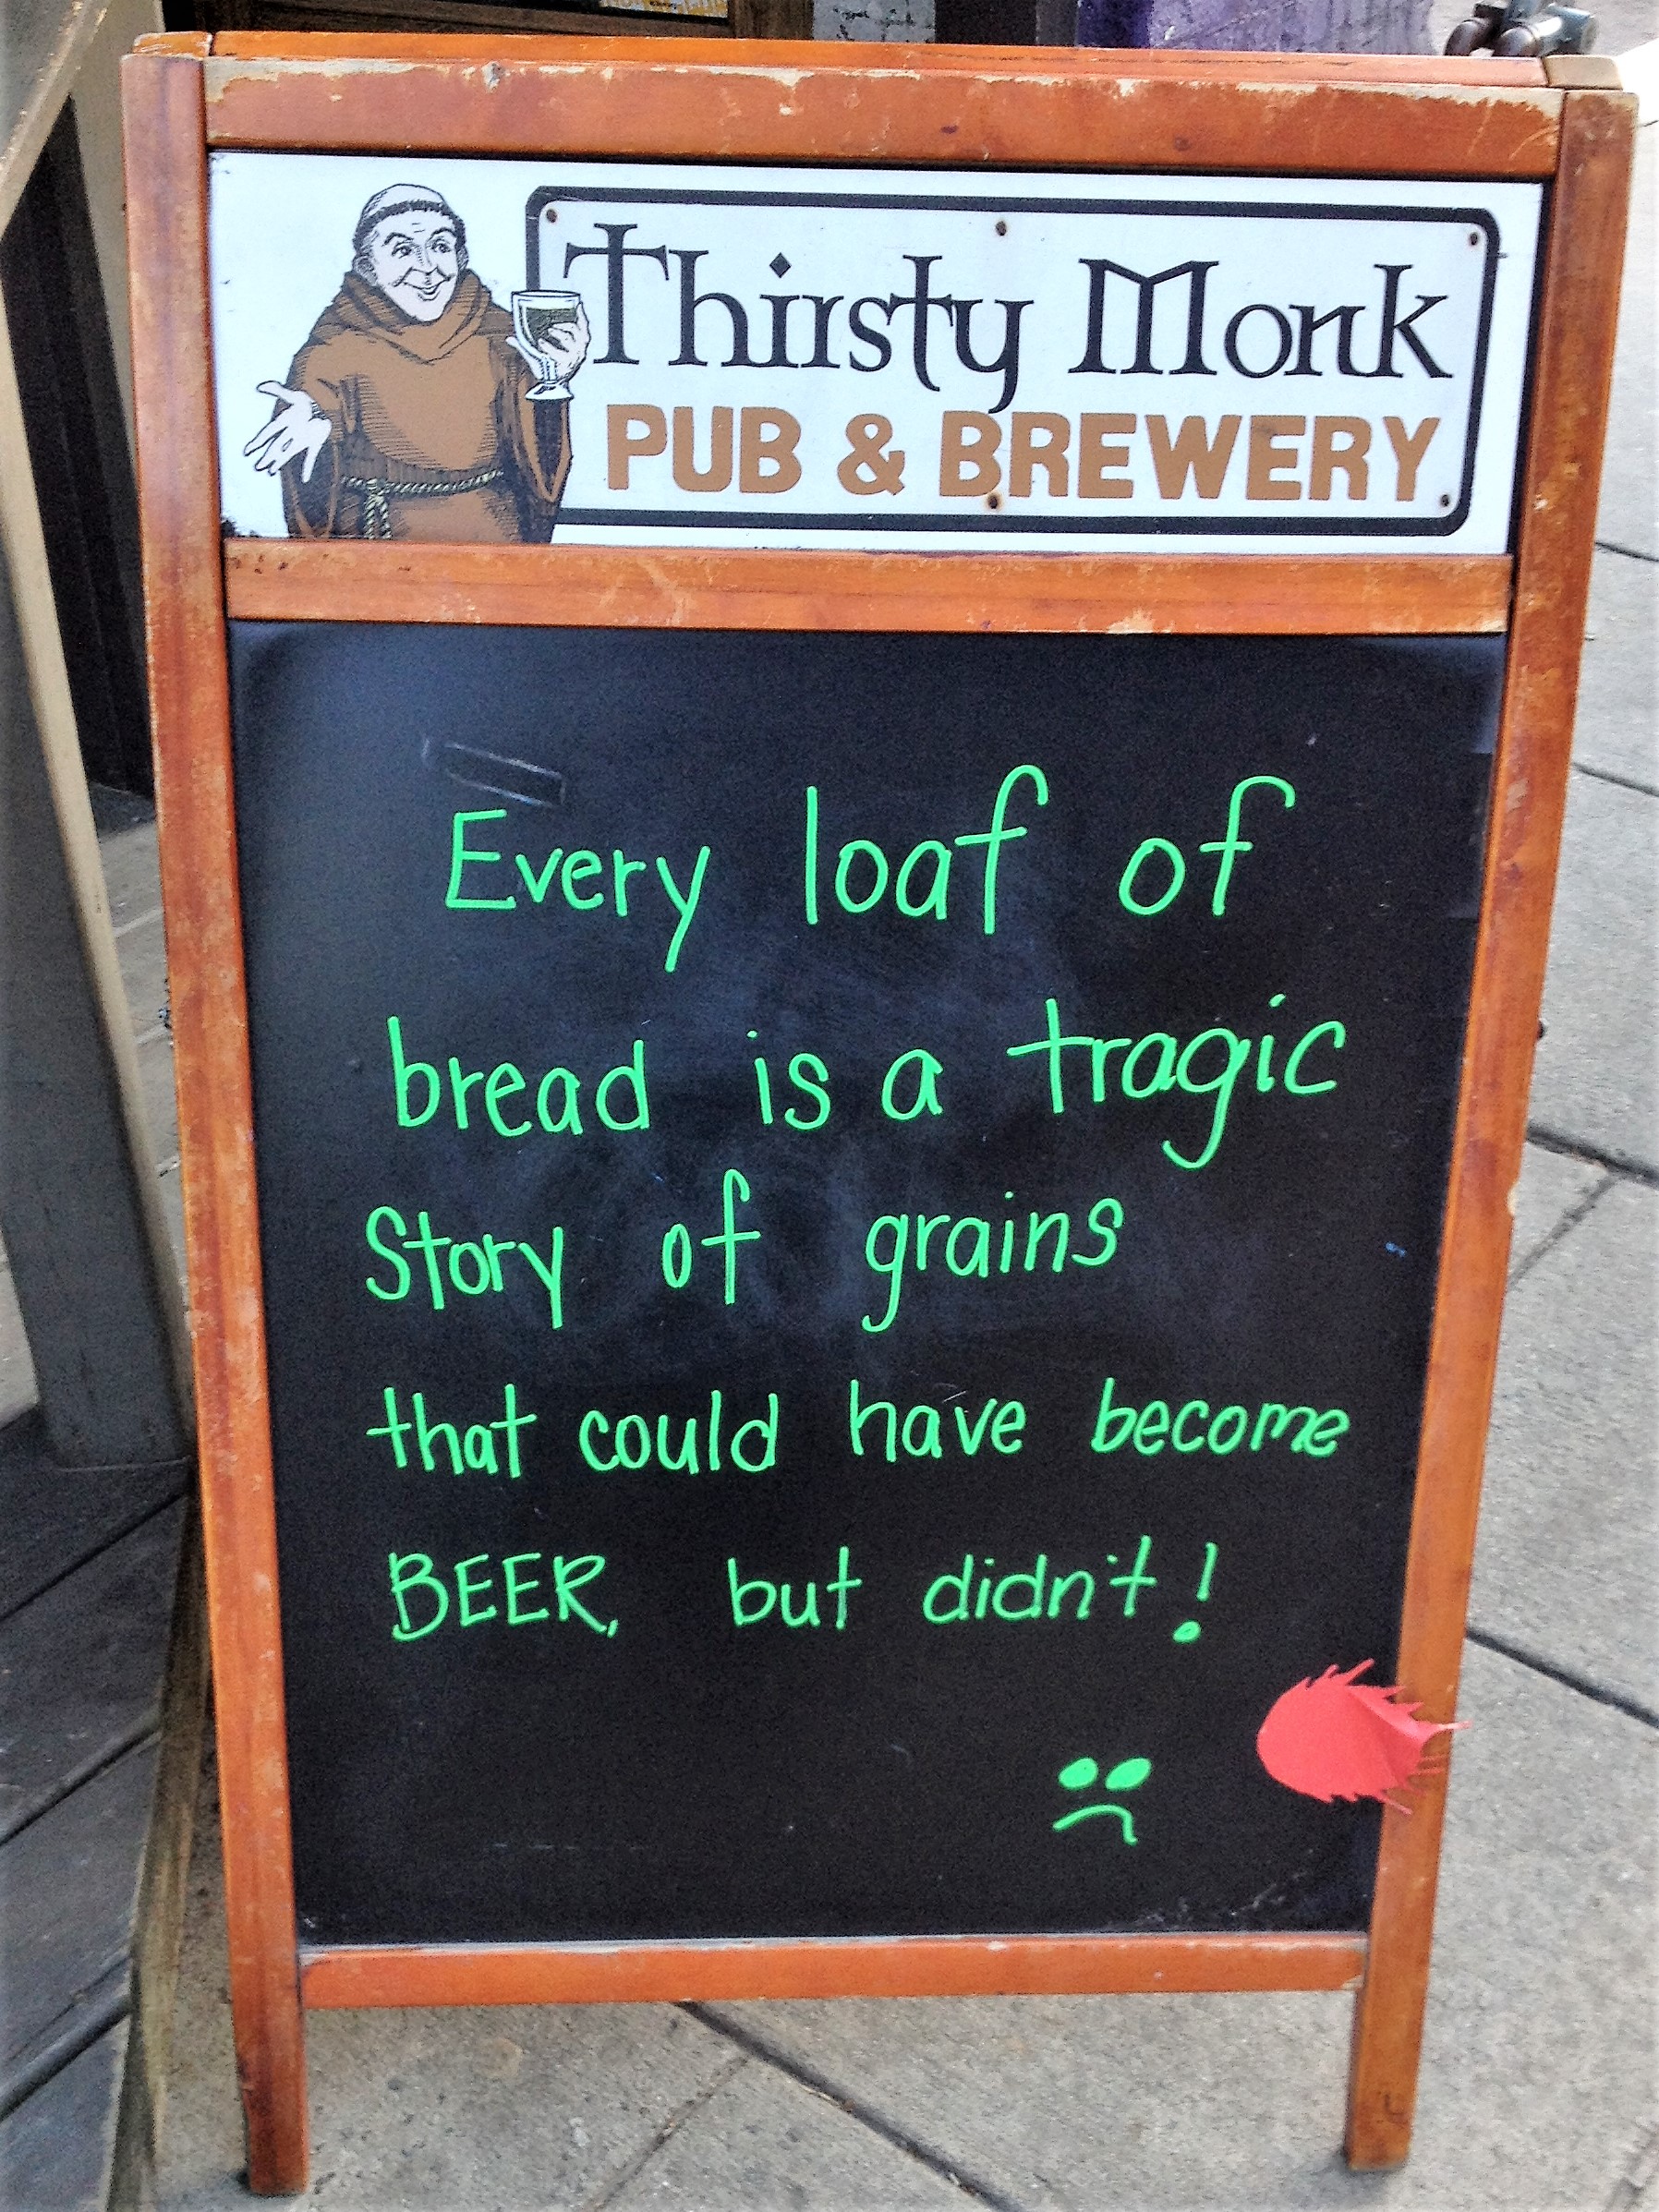 Thirsty Monk
PUB & BREWERY
Every loaf of
bread is a tragic
Story of grains
that could have become
BEER, but didn't!